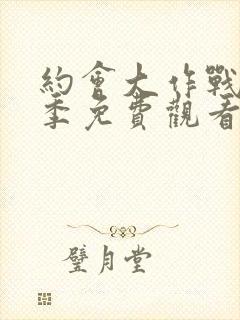 約會大作戰
季免費觀看
璧月堂